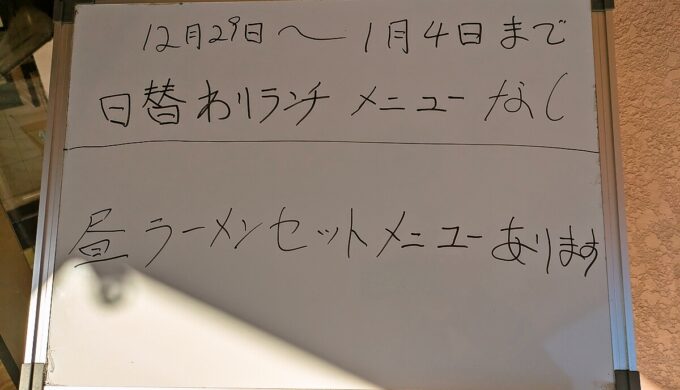 12月29日〜1月4日まで
日替わりランチメニューなし
昼ラーメンセットメニューあります